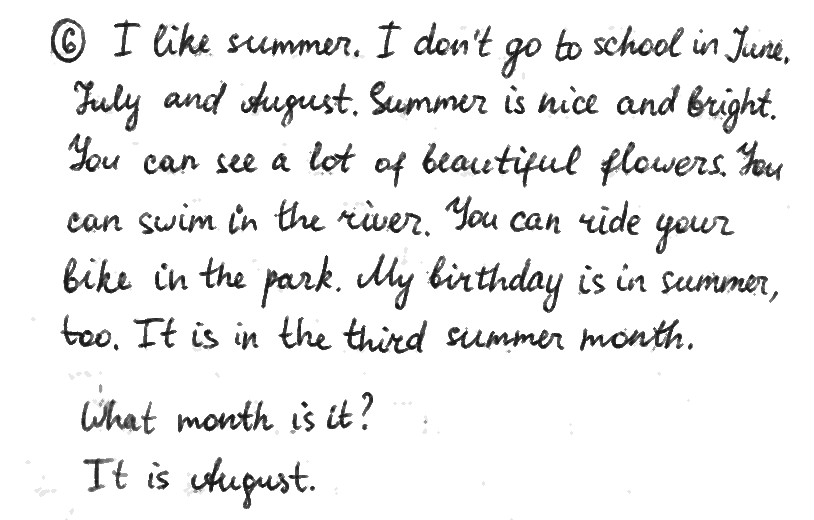 ⑥ I like summer. I don't go to school in June,
July and August. Summer is nice and bright.
You can see a lot of beautiful flowers. You
can swim in the river. You can ride your
bike in the park. My birthday is in summer,
too. It is in the third summer month.
What month is it?
It is August.